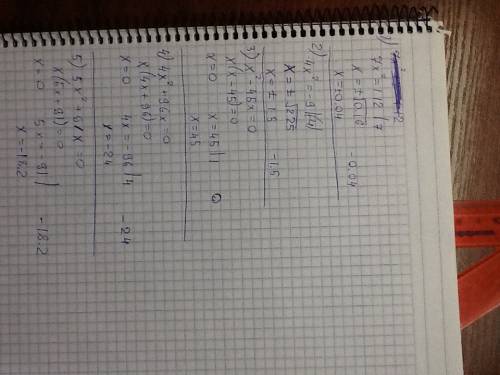 1) 7x² = 1,12 | 7
x = ±√0,16
x = ±0,04 -0,04
2) 4x² = -9 |(4)
x = ±√2,25
x = ±1,5 -1,5
3) x² - 45x = 0
x(x-45) = 0
x = 0 x = 45 | 1
x = 45 0
4) 4x² + 96x = 0
x(4x + 96) = 0
x = 0 4x = -96 | 4
x = -24 -24
5) 5x² + 91x = 0
x(5x + 91) = 0
x = 0 5x = -91 |
x = -18,2 -18,2